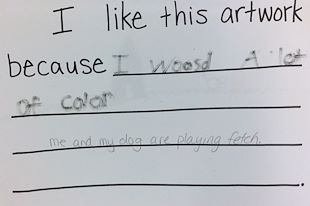 I like this artwork
because I woosd A lot
of color
me and my dog are playing fetch.